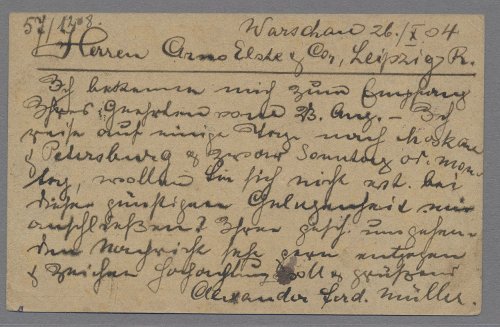 57/1308.
Warschau 26./X 04
Herren Arno Elste & Co., Leipzig R.
Ich bekenne mich zum Empfang
Ihres Geehrten vom 23. Aug. – Ich
reise auf einige Tage nach Moskau
& Petersburg & zwar Sonntag od. Mon-
tag, wollen Sie sich nicht evt. bei
dieser günstigen Gelegenheit mir
anschließen? Ihrer gesch. umgehen-
den Nachricht sehe gern entgegen
& zeichne hochachtungsvoll & grüßend
Alexander Ferd. Müller.